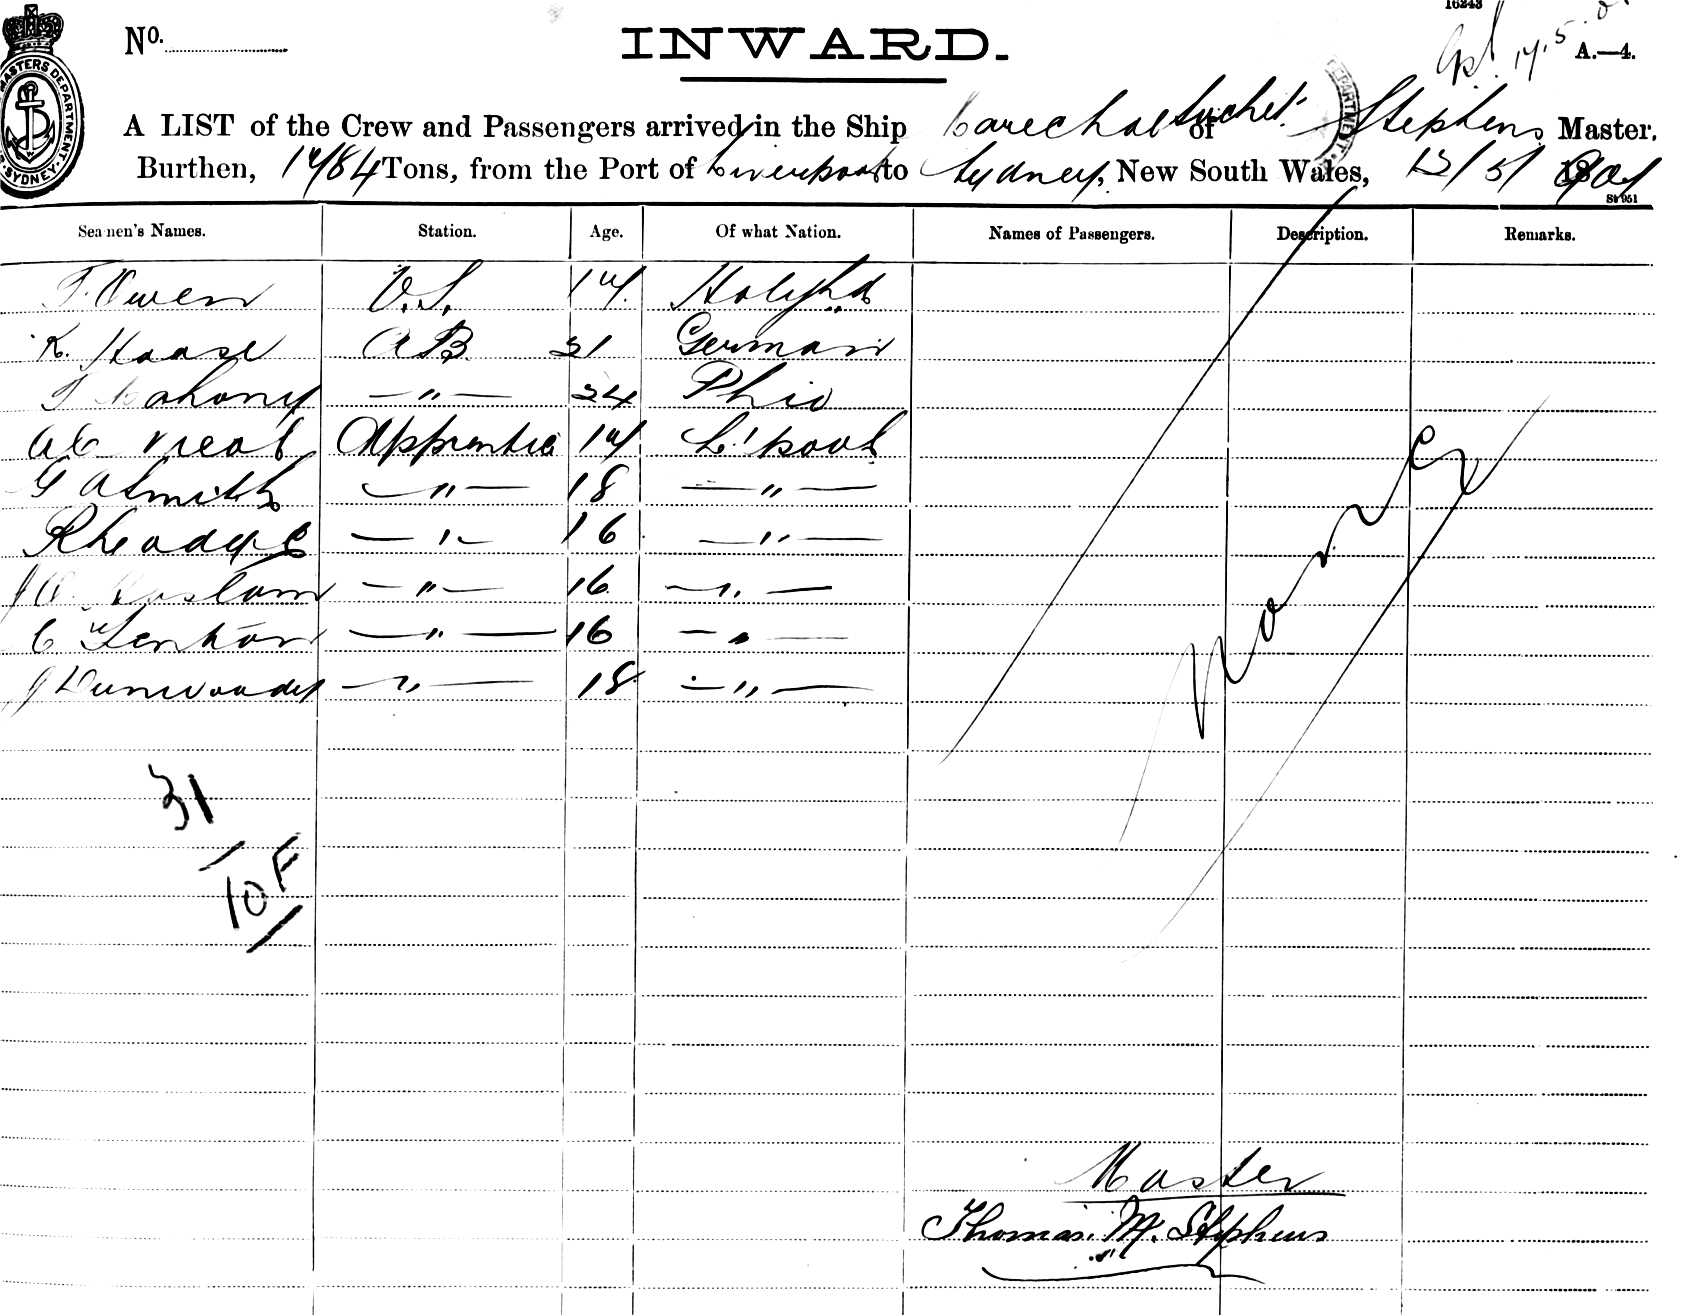 16243
No. INWARD. A.—4.
MASTERS DEPARTMENT SYDNEY
A LIST of the Crew and Passengers arrived in the Ship Marechal Suchet of Stephens Master,
Burthen, 1784 Tons, from the Port of Liverpool to Sydney, New South Wales, 13/5/1901
Seamen's Names. Station. Age. Of what Nation. Names of Passengers. Description. Remarks.
T. Owen O.S. 17 Holyhd
K. Haase AB 31 German
T Mahony —"— 24 Ohio
Neal Apprentice 17 L'pool
G A Smith —"— 18 —"—
—"— 16 —"—
—"— 16 —"—
C Fenton —"— 16 —"—
J Dunwoody —"— 18 —"—
None
31
10 F
Master
Thomas. M. Stephens